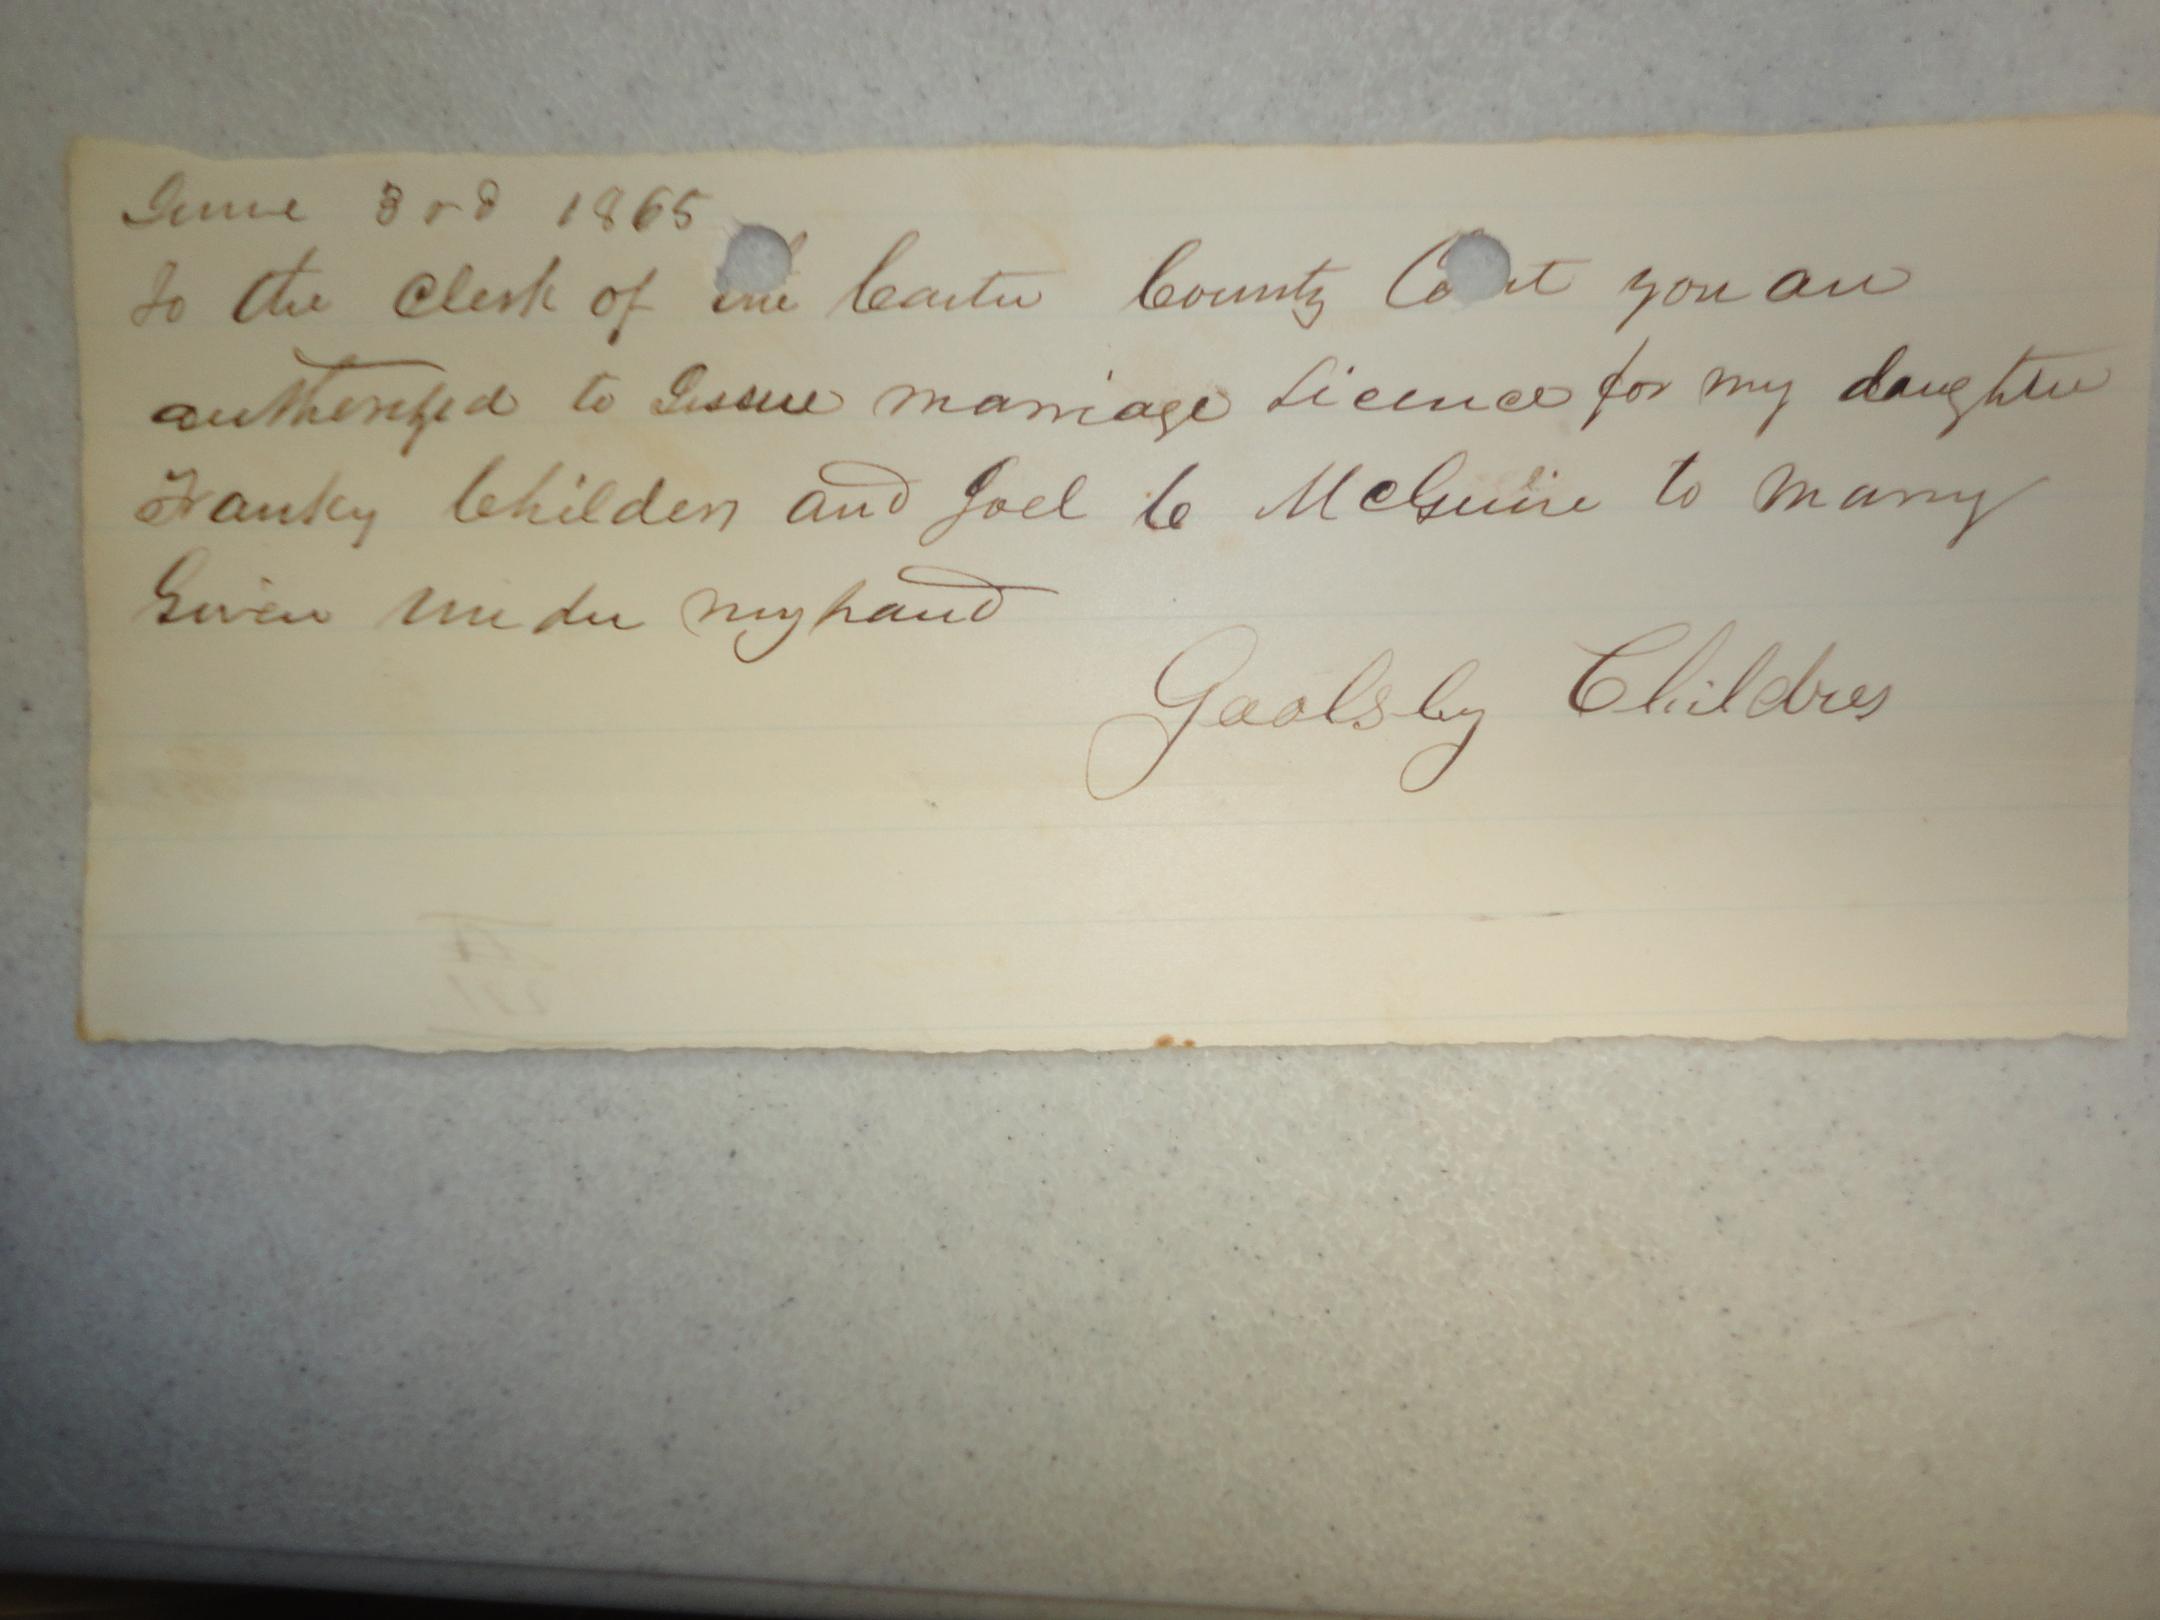 June 3rd 1865
To the Clerk of the Carter County Co rt you are
autherized to Issue marriage Licence for my daughter
Franky Childers and Joel C McGuire to marry
Given under my hand
Goolsby Childres